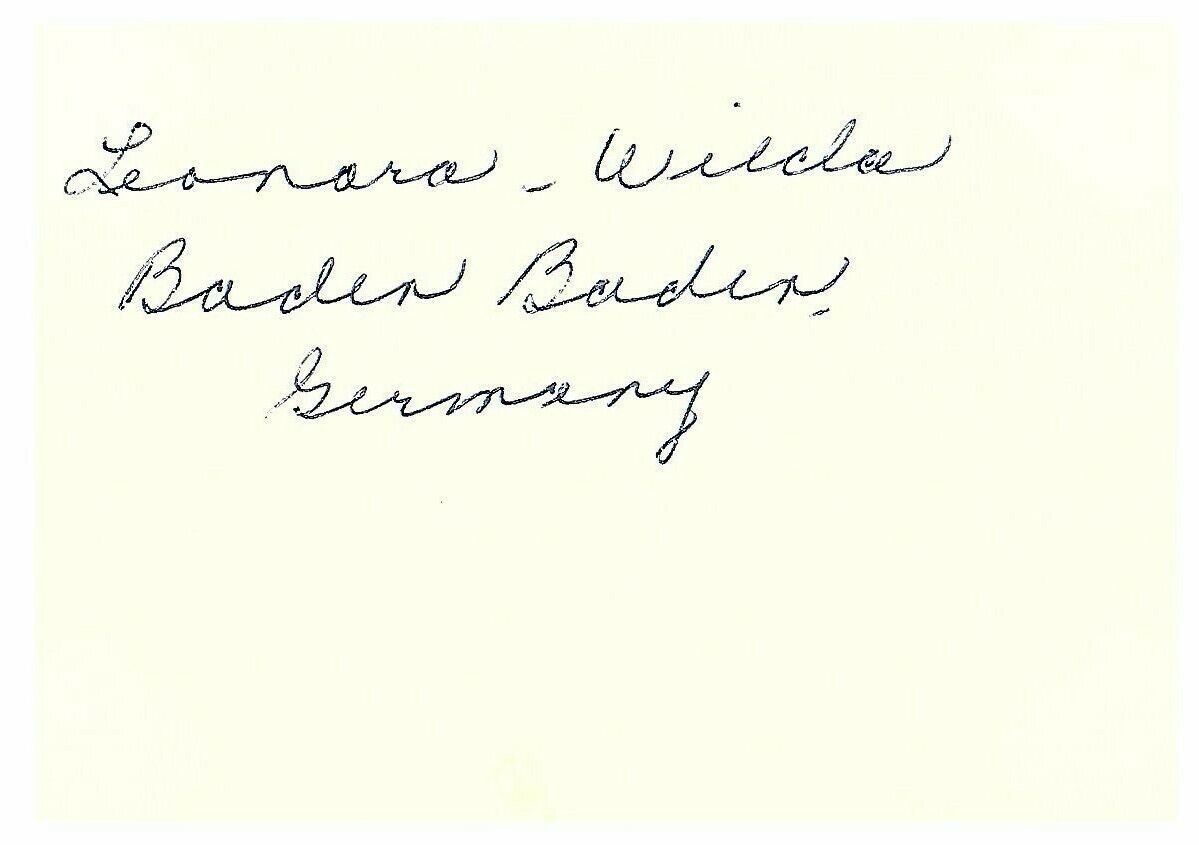 Leonora - Wilda
Baden Baden.
Germany